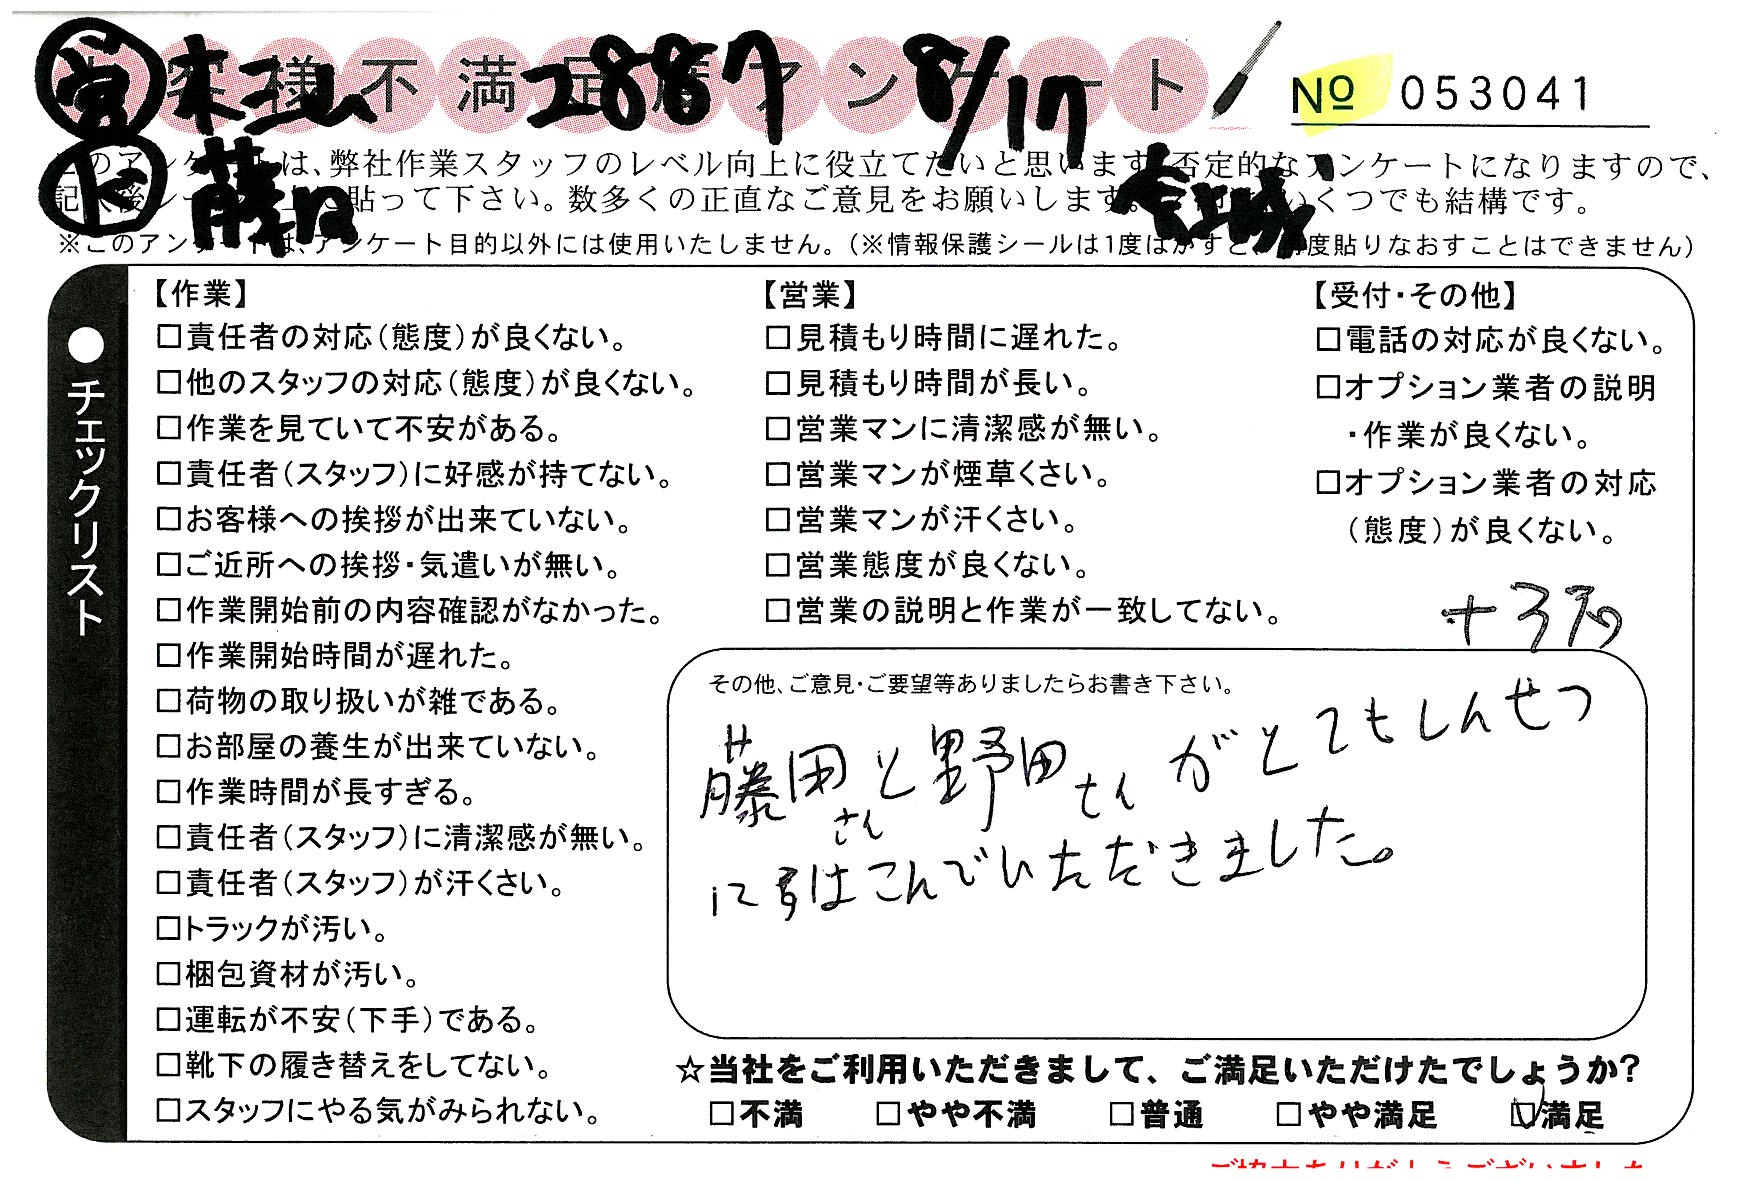 お客様不満足度アンケート
2887 8/17
№ 053041
このアンケートは、弊社作業スタッフのレベル向上に役立てたいと思います。否定的なアンケートになりますので、
記入後シールを上に貼って下さい。数多くの正直なご意見をお願いします。いくつでも結構です。
※このアンケートは、アンケート目的以外には使用いたしません。（※情報保護シールは1度はがすと、再度貼りなおすことはできません）
●チェックリスト
【作業】
□責任者の対応（態度）が良くない。
□他のスタッフの対応（態度）が良くない。
□作業を見ていて不安がある。
□責任者（スタッフ）に好感が持てない。
□お客様への挨拶が出来ていない。
□ご近所への挨拶・気遣いが無い。
□作業開始前の内容確認がなかった。
□作業開始時間が遅れた。
□荷物の取り扱いが雑である。
□お部屋の養生が出来ていない。
□作業時間が長すぎる。
□責任者（スタッフ）に清潔感が無い。
□責任者（スタッフ）が汗くさい。
□トラックが汚い。
□梱包資材が汚い。
□運転が不安（下手）である。
□靴下の履き替えをしてない。
□スタッフにやる気がみられない。
【営業】
□見積もり時間に遅れた。
□見積もり時間が長い。
□営業マンに清潔感が無い。
□営業マンが煙草くさい。
□営業マンが汗くさい。
□営業態度が良くない。
□営業の説明と作業が一致してない。
【受付・その他】
□電話の対応が良くない。
□オプション業者の説明
・作業が良くない。
□オプション業者の対応
（態度）が良くない。
その他、ご意見・ご要望等ありましたらお書き下さい。
藤田さんと野田さんがとてもしんせつ
にはこんでいただきました。
☆当社をご利用いただきまして、ご満足いただけたでしょうか？
□不満 □やや不満 □普通 □やや満足 ☑満足
ご協力ありがとうございました